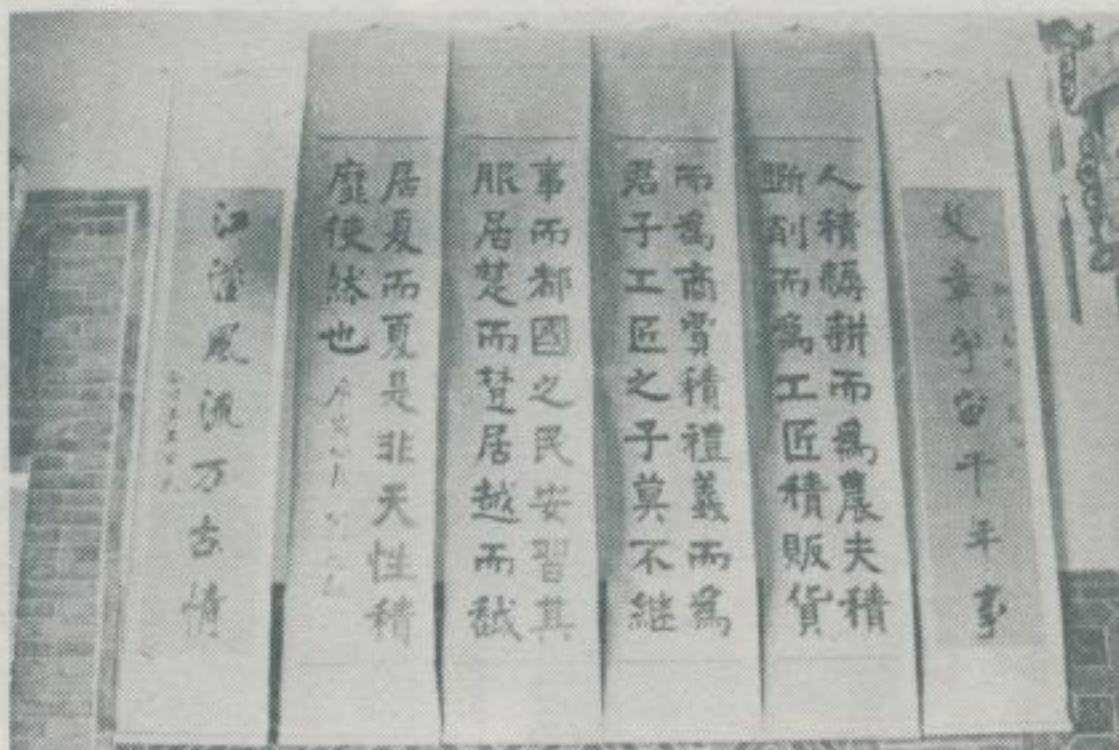 文章宇宙千年事
人積耨耕而爲農夫積
斲削而爲工匠積販貨
而爲商賈積禮義而爲
君子工匠之子莫不継
事而都國之民安習其
服居楚而楚居越而越
居夏而夏是非天性積
靡使然也
江漢風流万古情